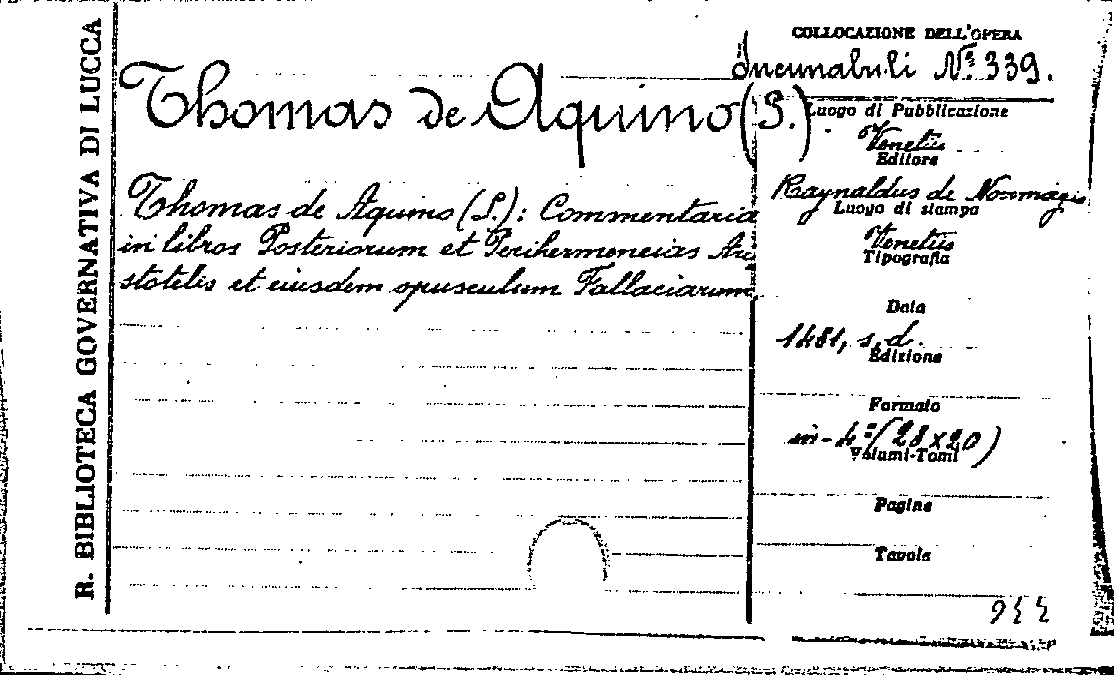 R. BIBLIOTECA GOVERNATIVA DI LUCCA
Thomas de Aquino (S.)
Thomas de Aquino (S.): Commentaria
in libros Posteriorum et Perihermeneias Ari
stotelis et eiusdem opusculum Fallaciarum
COLLOCAZIONE DELL'OPERA
Incunabuli Nº 339.
Luogo di Pubblicazione
Venetiis
Editore
Raynaldus de Novimagio
Luogo di stampa
Venetiis
Tipografia
Data
1481, s.d.
Edizione
Formato
in-4º (28x20)
Volumi-Tomi
Pagine
Tavole